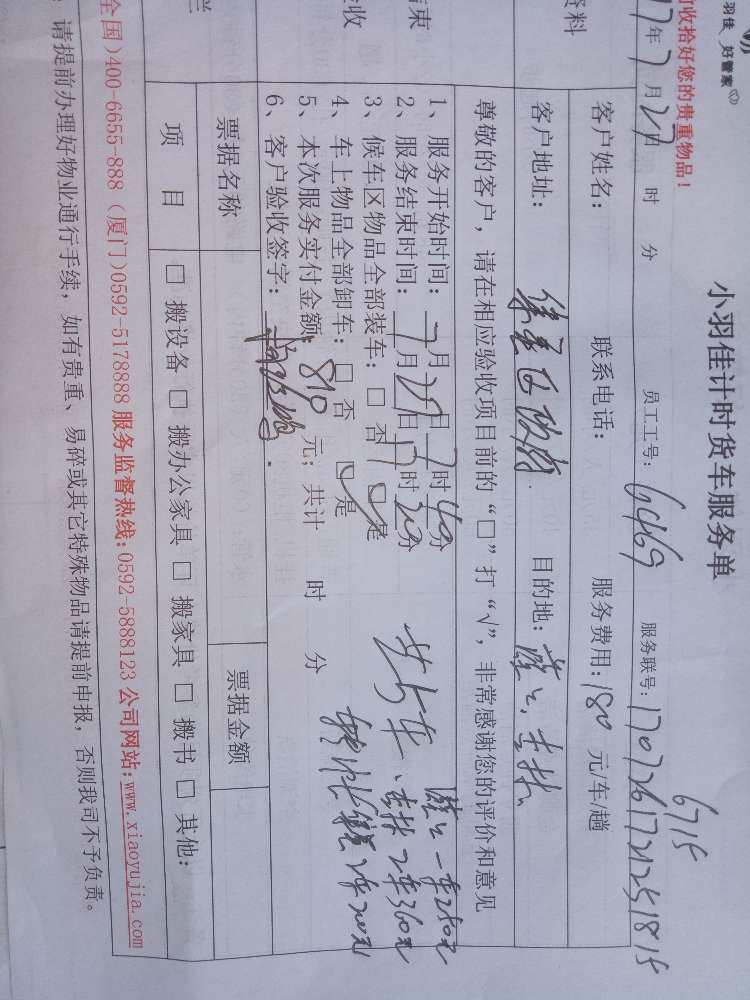 羽佳 好管家
收拾好您的贵重物品！
小羽佳计时货车服务单
17年7月27日 时 分 员工工号：6469 服务联号：
6715
资料
客户姓名： 联系电话： 服务费用：180 元/车/趟
客户地址： 目的地：
尊敬的客户，请在相应验收项目前的“□”打“√”，非常感谢您的评价和意见
结束
验收
1、服务开始时间：7月
2、服务结束时间：7月
3、候车区物品全部装车：□否 ☑是
4、车上物品全部卸车：□否 ☑是
5、本次服务实付金额：810 元；共计 时 分
6、客户验收签字：
共5车、
一车250元
2车360元
2车200元
票据名称 票据金额
项 目 □ 搬设备 □ 搬办公家具 □ 搬家具 □ 搬书 □ 其他：
全国)400-6655-888（厦门)0592-5178888 服务监督热线：0592-5888123 公司网站：www.xiaoyujia.com
：请提前办理好物业通行手续，如有贵重、易碎或其它特殊物品请提前申报，否则我司不予负责。